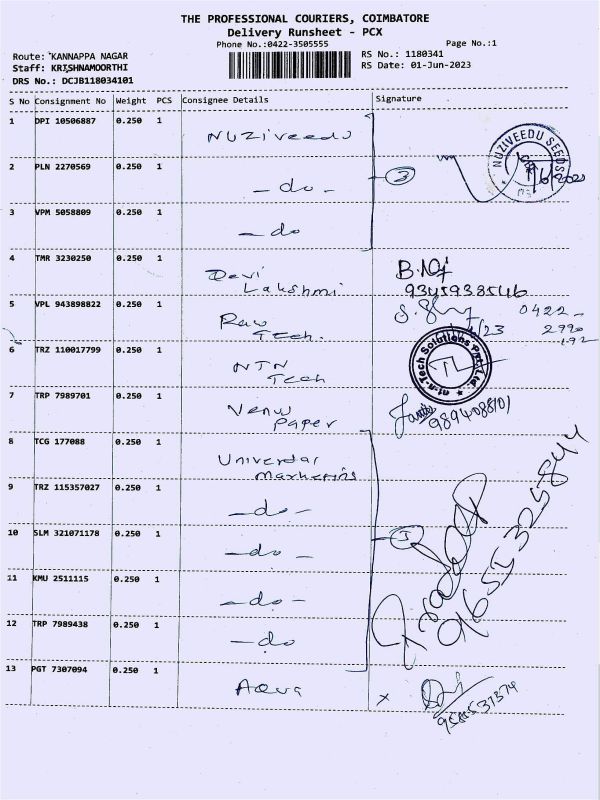 THE PROFESSIONAL COURIERS, COIMBATORE
Delivery Runsheet - PCX
Phone No.:0422-3505555
Page No.:1
Route: KANNAPPA NAGAR
RS No.: 1180341
Staff: KRISHNAMOORTHI
RS Date: 01-Jun-2023
DRS No.: DCJB118034101
S No Consignment No Weight PCS Consignee Details Signature
1 DPI 10506887 0.250 1 NUZIVEEDU
NUZIVEEDU SEEDS
2 PLN 2270569 0.250 1 - do -
3 VPM 5058809 0.250 1 - do
4 TMR 3230250 0.250 1 Devi
Lakshmi
9345938546
5 VPL 943898822 0.250 1 Raw
Tech.
0422-
6 TRZ 110017799 0.250 1 NTN
Tech
Tech Solutions Pvt Ltd
7 TRP 7989701 0.250 1 Venu
Paper
8 TCG 177088 0.250 1 Universal
Marketing
9 TRZ 115357027 0.250 1 - do -
10 SLM 321071178 0.250 1 - do -
11 KMU 2511115 0.250 1 - do -
12 TRP 7989438 0.250 1 - do
13 PGT 7307094 0.250 1 Aqua
X